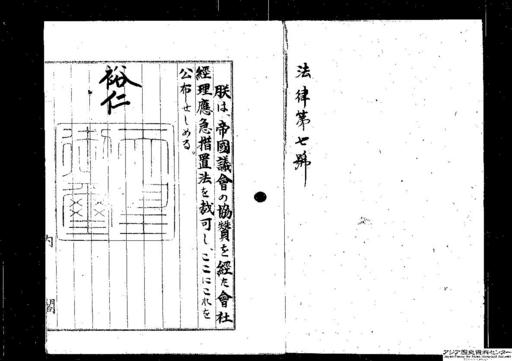 法律第七號
朕は、帝國議會の協贊を經た會社
經理應急措置法を裁可し、ここにこれを
公布せしめる。
裕仁
天皇御璽
内閣
アジア歴史資料センター